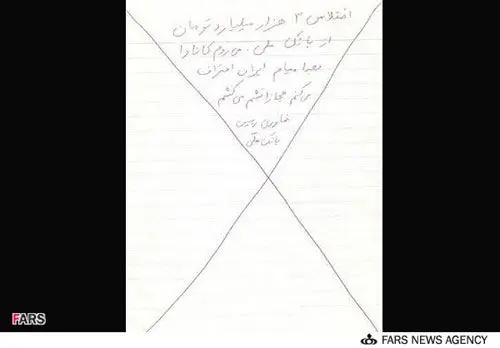 اختلاس ۳ هزار میلیارد تومان
از بانک ملی . می‌روم کانادا
بعدا میام ایران اعتراف
می‌کنم مجازاتشم می‌کشم
خاوری رییس
بانک ملی
FARS
FARS NEWS AGENCY